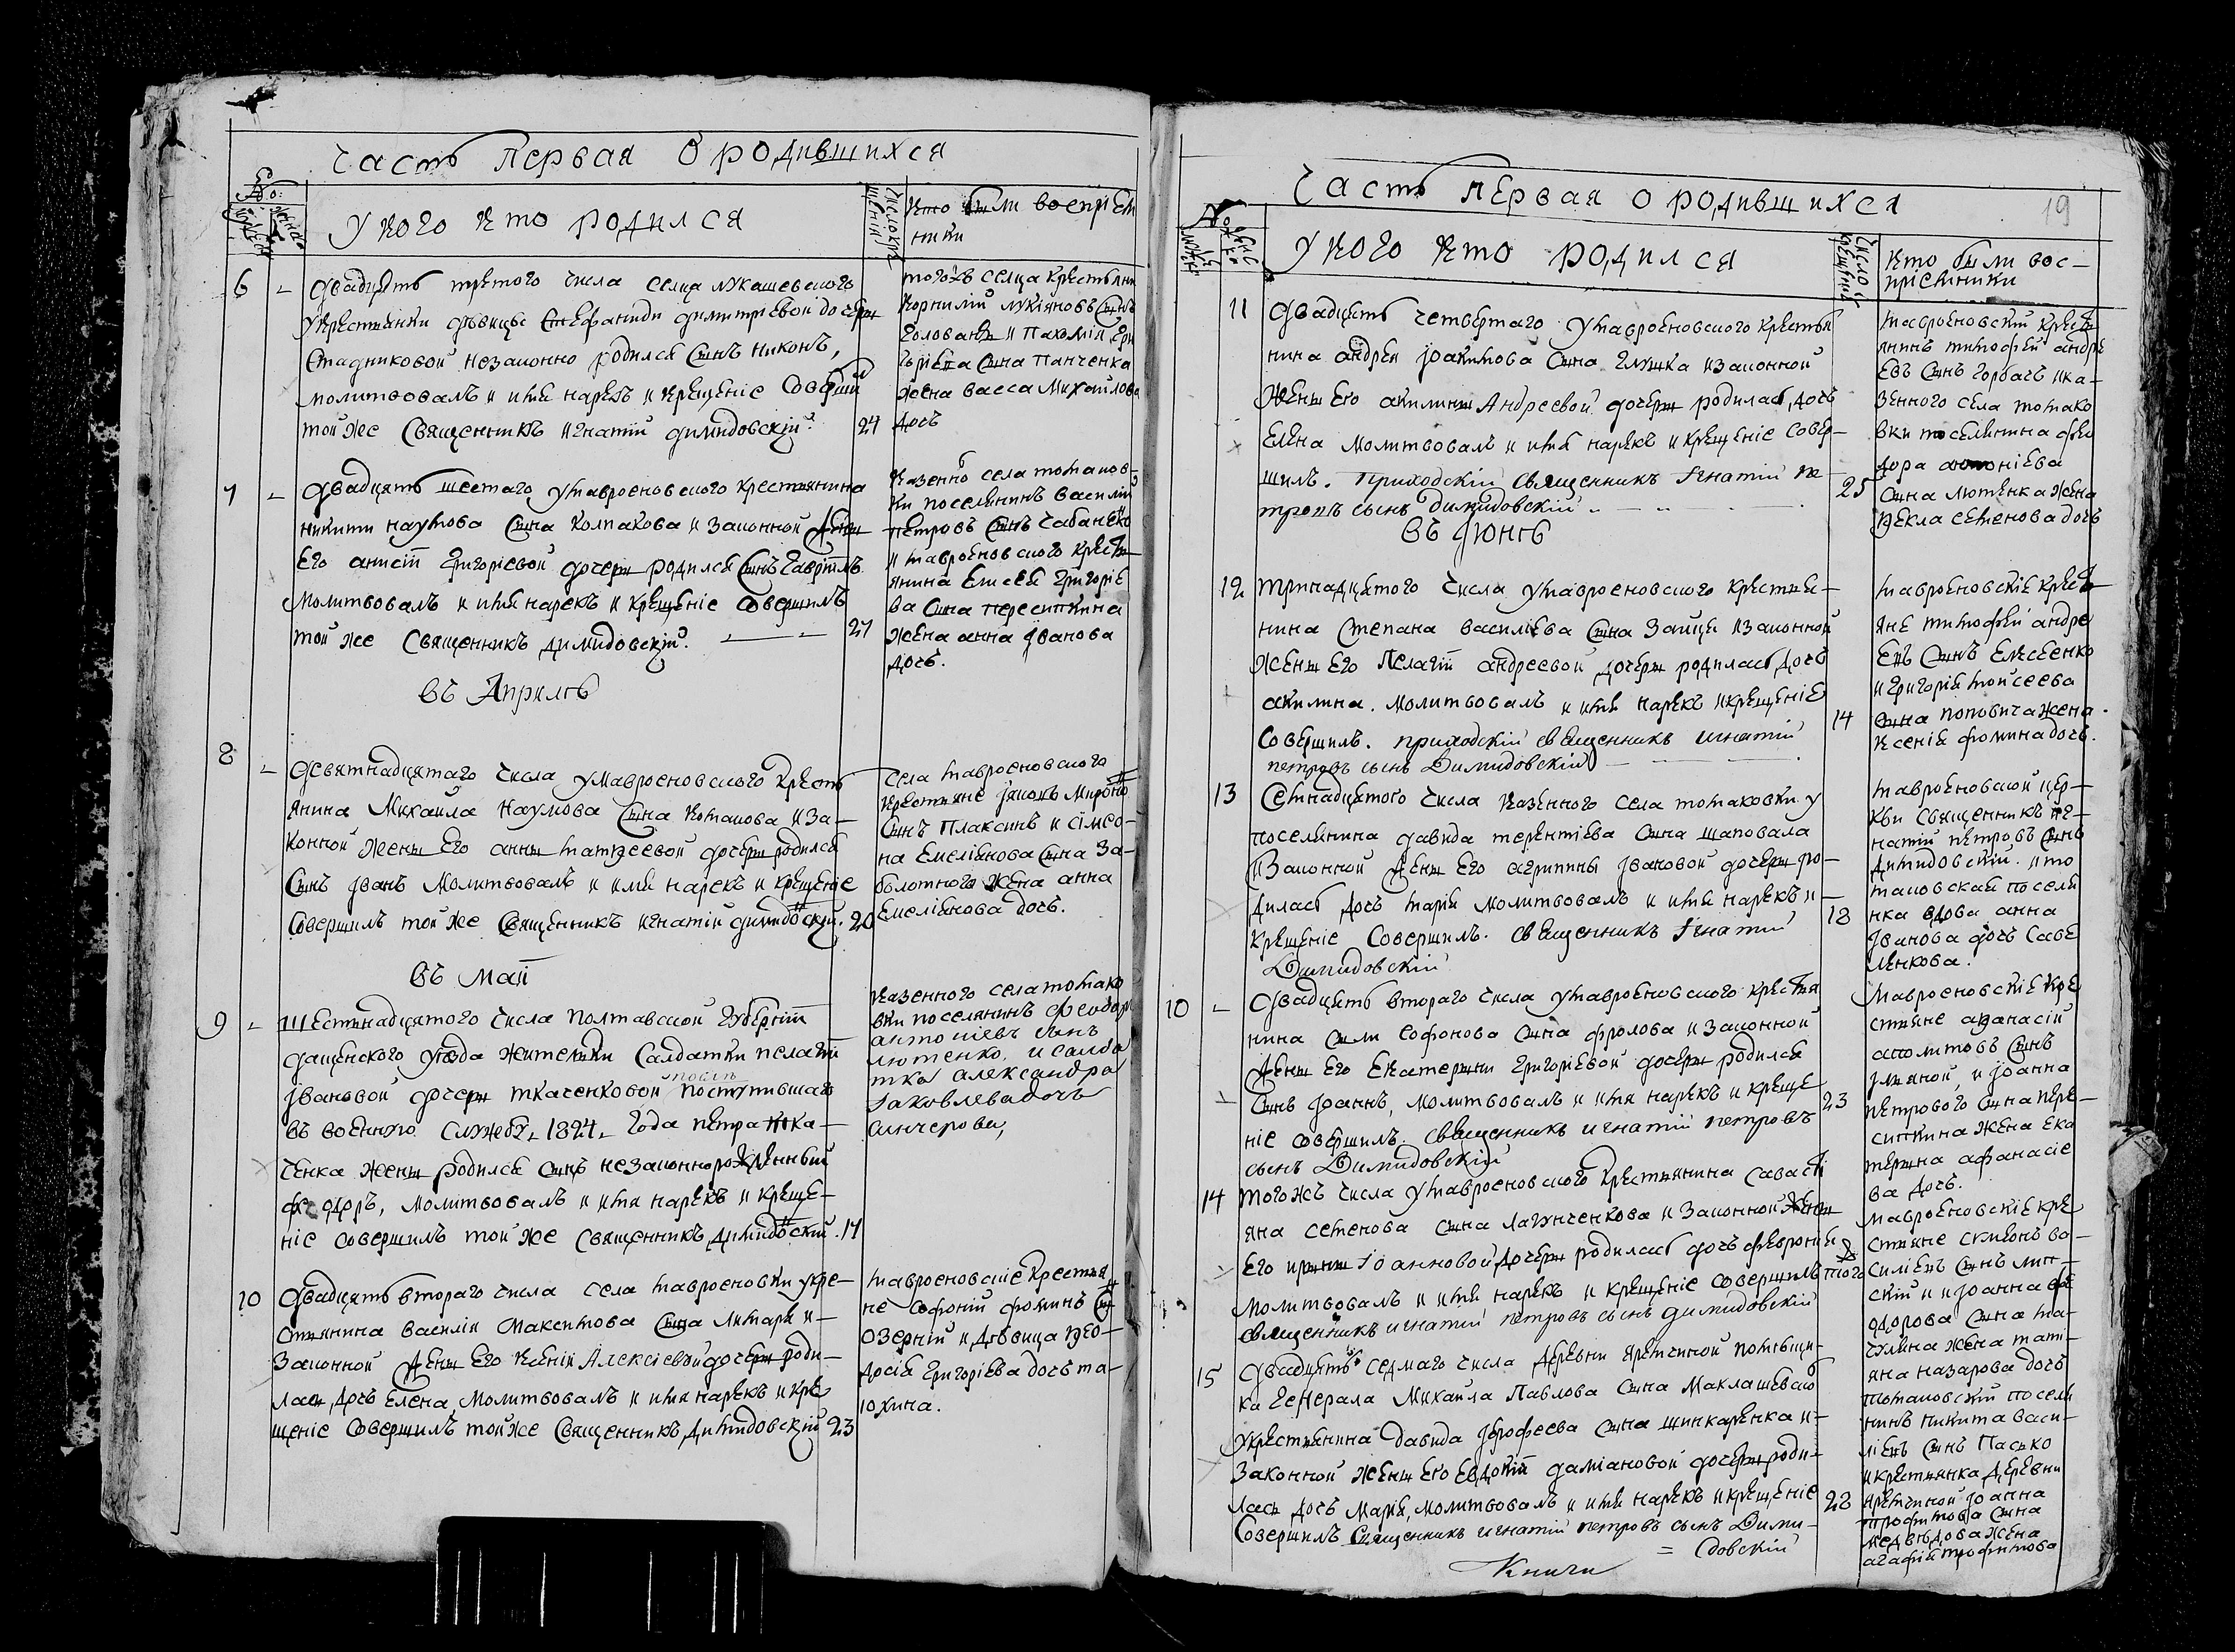 Часть первая о родившихся
У кого кто родился
Кто были воспріем
ники
6
двадцять третого числа селца лукашевского
укрестянки дѣвицы Стефаниди димитріевой дочери
Стадниковой незаконно родился Сынъ никонъ,
молитвовалъ и имя нарекъ и крещеніе Соверши
той же Священникъ игнатій димидовскій. 24
тогожъ селца крестянинъ
корнилій лукіяновъ Сынъ
Голованъ и Пахомія Гри
горіева Сына Панченка
жена васса Михайлова
дочъ
7
двадцять шестаго умавроеновского крестянина
никити наумова Сына Колпакова и Законной Жены
его анисіи григоріевой дочери родился Сынъ Гавріилъ
Молитвовалъ и имя нарекъ и крещеніе Совершилъ
той же Священникъ димидовскій. 27
Казенно села томаков
ки поселянинъ василій
петровъ Сынъ Чабаненко
и мавроеновского крест
янина Елисея григоріе
ва Сына пересипкина
жена анна іванова
дочъ.
въ Априлѣ
8
девятнадцятаго числа умавроеновского кресть
янина Михаила Наумова Сына Комакова и За-
конной жены его анны матвеевой дочери родился
Сынъ іванъ Молитвовалъ и имя нарекъ и крещеніе
совершилъ той же Священникъ игнатій димидовскій. 20
села мавроеновского
крестяне
Сынъ Плаксинъ и сімео-
на Емеліянова Сына За-
болотного жена анна
Емеліянова дочъ.
въ маіи
9
Шестнадцятого числа полтавской Губерніи
уѣзда жителки Салдатки пелагіи
івановой дочери ткаченковой послѣ поступившаго
въ военную службу 1824 года петра тка-
ченка жены родился Сынъ незаконнорожденный
феодоръ, молитвовалъ и имя нарекъ и креще-
ніе совершилъ той же Священникъ димидовскій. 17
казенного села томако
вки поселянинъ феодоръ
антоніевъ сынъ
лютенко, и салда
тка александра
Іаковлева дочъ
10
двадцять второго числа села мавроеновки укре-
стянина василія Максимова Сына Лимаря и
Законной Жены его ксеніи Алексіевой дочери роди-
лась дочъ Елена, Молитвовалъ и имя нарекъ и кре
щеніе Совершилъ тойже Священникъ димидовскій 23
мавроеновскіе крестя
не софоній фоминъ Сынъ
Озерній и Дѣвица Ѳео-
досія григоріева дочъ ма-
юхина.
Часть первая о родившихся
19
У кого кто родился
Число крещенія
Кто были вос-
пріемники
11
двадцять четвертаго умавроеновского крестья
нина андрея іоакимова Сына Глушка и законной
Жены его акилины Андреевой дочери родилась дочъ
Елена Молитвовалъ и имя нарекъ и крещеніе совер-
шилъ. Приходскій Священникъ Игнатій пе-
тровъ сынъ Димидовскій 25
мавроеновскій крест
янинъ тимофей андре
евъ Сынъ горбачъ и ка-
зенного села томако
вки поселянина фео
дора антоніева
Сына лютенка жена
Ѳекла семенова дочъ
въ Іюнѣ
12
тринадцятого числа умавроеновского крестья-
нина Степана василіева Сына Зайця и законной
жены его Пелагіи андреевой дочери родилась дочъ
акилина. Молитвовалъ и имя нарекъ и крещеніе
Совершилъ. приходскій священникъ игнатій 14
петровъ сынъ Димидовскій
мавроеновскіе крест
яне тимофей андре
евъ Сынъ Елисеенко
и григорія моисеева
сына поповича жена
ксенія фомина дочъ.
13
Семнадцятого числа казенного села томаковки у
поселянина давида терентіева Сына шаповала
и Законной Жены его агрипины івановой дочери ро-
дилась дочъ марія молитвовалъ и имя нарекъ и
крещеніе Совершилъ. священникъ Игнатій 18
Димидовскій
мавроеновской цер-
кви священникъ иг-
натій петровъ Сынъ
димидовскій. и то
маковская поселя
нка вдова анна
іванова дочъ Саве
ленкова.
10
двадцять второго числа умавроеновского крестья
нина Сили Софонова Сына фролова и Законной
Жены его Екатерины григоріевой дочери родился
Сынъ Іоаннъ, молитвовалъ и имя нарекъ и креще 23
ніе совершилъ. священникъ игнатій петровъ
сынъ Димидовскій
Мавроеновскіе кре
стяне афанасій
Сынъ
и іоанна
петрового Сына пере-
сипкина жена ека
терина афанасіе
ва дочъ.
14
того жъ числа умавроеновского крестянина Савасті
яна семенова Сына Лагунченкова и Законной жены
его ирины Іоанновой дочери родилась дочъ февронія
молитвовалъ и имя нарекъ и крещеніе совершилъ
священникъ игнатій петровъ сынъ димидовскій
мавроеновскіе кре
стяне симеонъ ва-
силіевъ Сынъ лип-
скій и іоанна фе
одорова Сына ма-
жена тати-
яна назарова дочъ
15
двадцять седмаго числа Деревни яремчиной помѣщи-
ка Генерала Михаила Павлова Сына Маклашевской
укрестянина Давида Ерофеева Сына шинкаренка и
Законной жены его Евдокіи даміановой дочери роди-
лась дочъ Марія, молитвовалъ и имя нарекъ и крещеніе 28
Совершилъ Священникъ игнатій петровъ сынъ Дими-
= довскій
томаковскій поселя
нинъ никита васи-
ліевъ Сынъ Пасько
и крестянка Деревни
яремчиной іоанна
трофимова Сына
медвѣдова жена
агафія трофимова
Книги